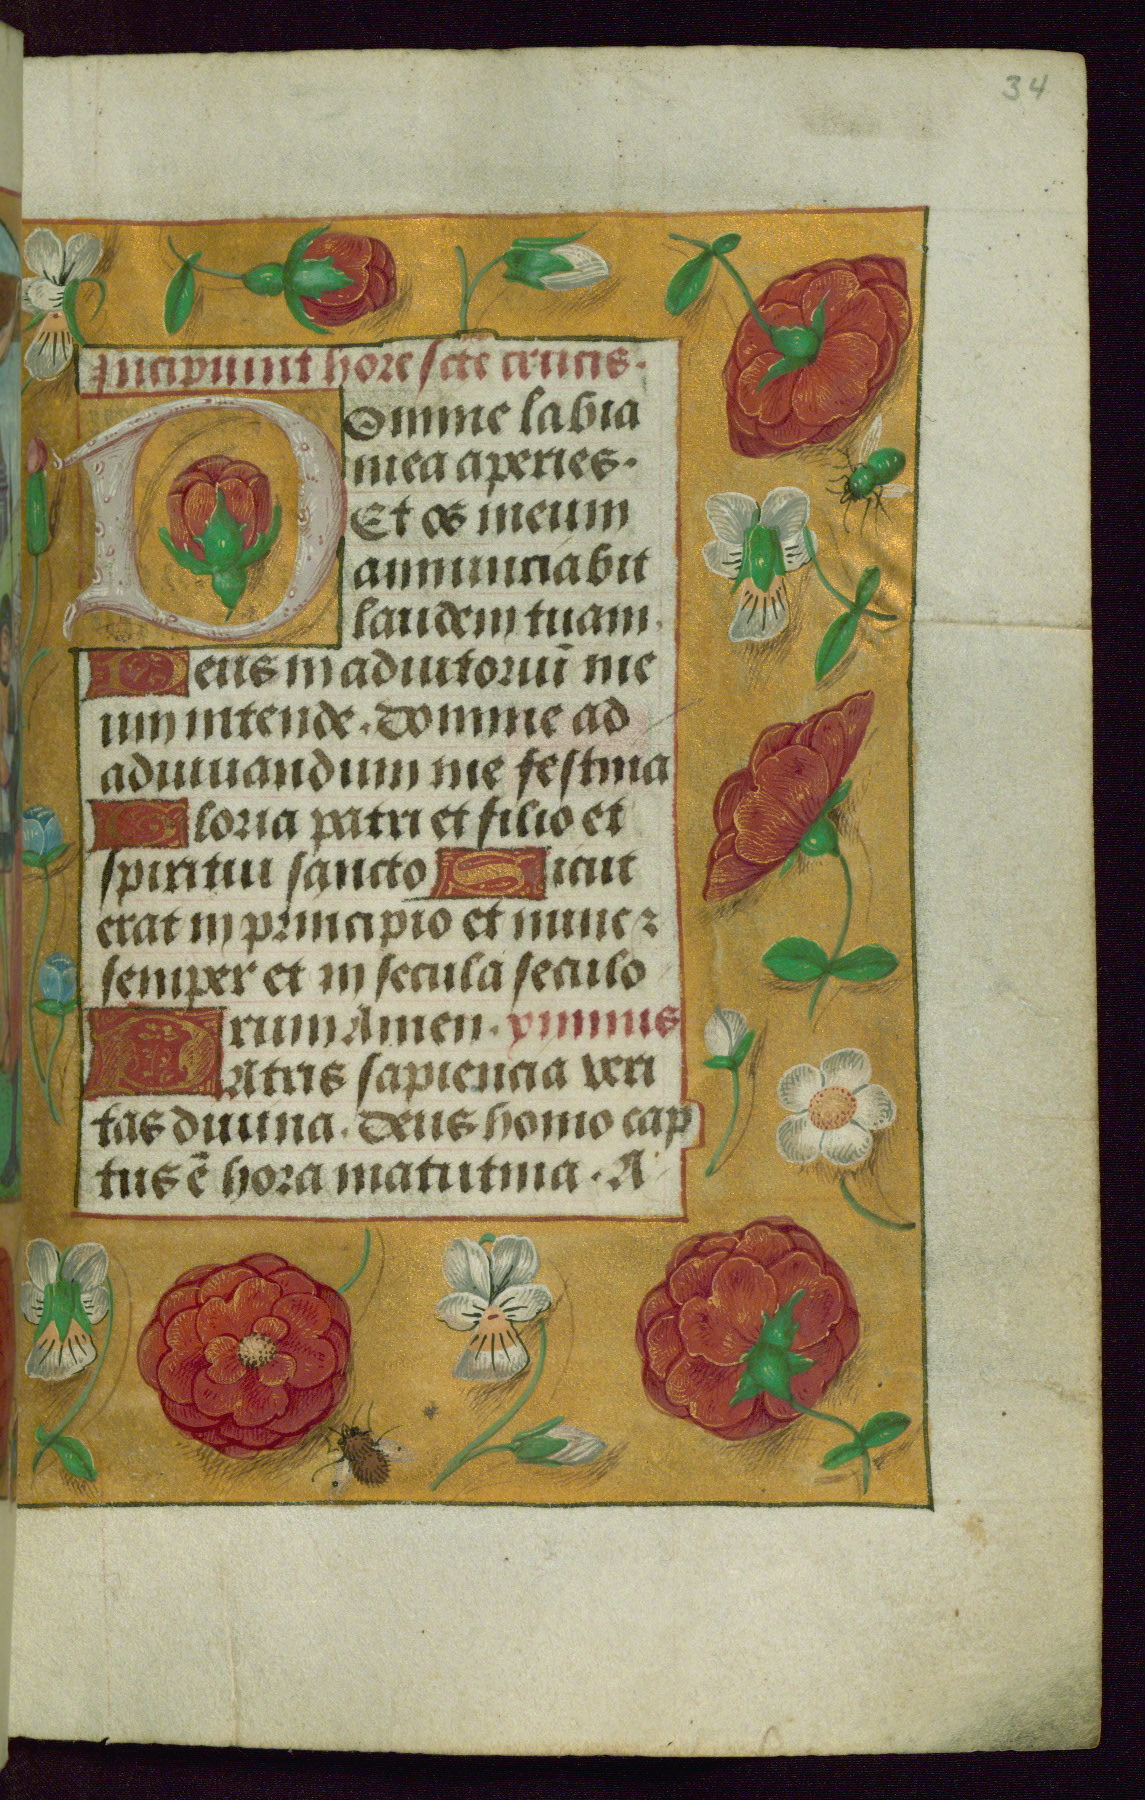 34
Incipiunt hore scte crucis.
Domine labia
mea aperies.
Et os meum
annunciabit
laudem tuam.
Deus in adiutoriū me
um intende. Domine ad
adiuuandum me festina
Gloria patri et filio et
spiritui sancto Sicut
erat in principio et nunc ⁊
semper et in secula seculo
rum Amen. ymnus
PAtris sapiencia veri
tas diuina. Deus homo cap
tus ē hora matutina. A